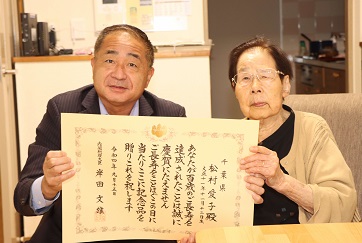 千葉県
松村愛子殿
あなたが百歳のご長寿を
達成されたことは誠に
慶賀にたえません
ご長寿をことほぐこの日に
当たりここに記念品を
贈りこれを祝します
令和四年九月十五日
内閣総理大臣
岸田文雄